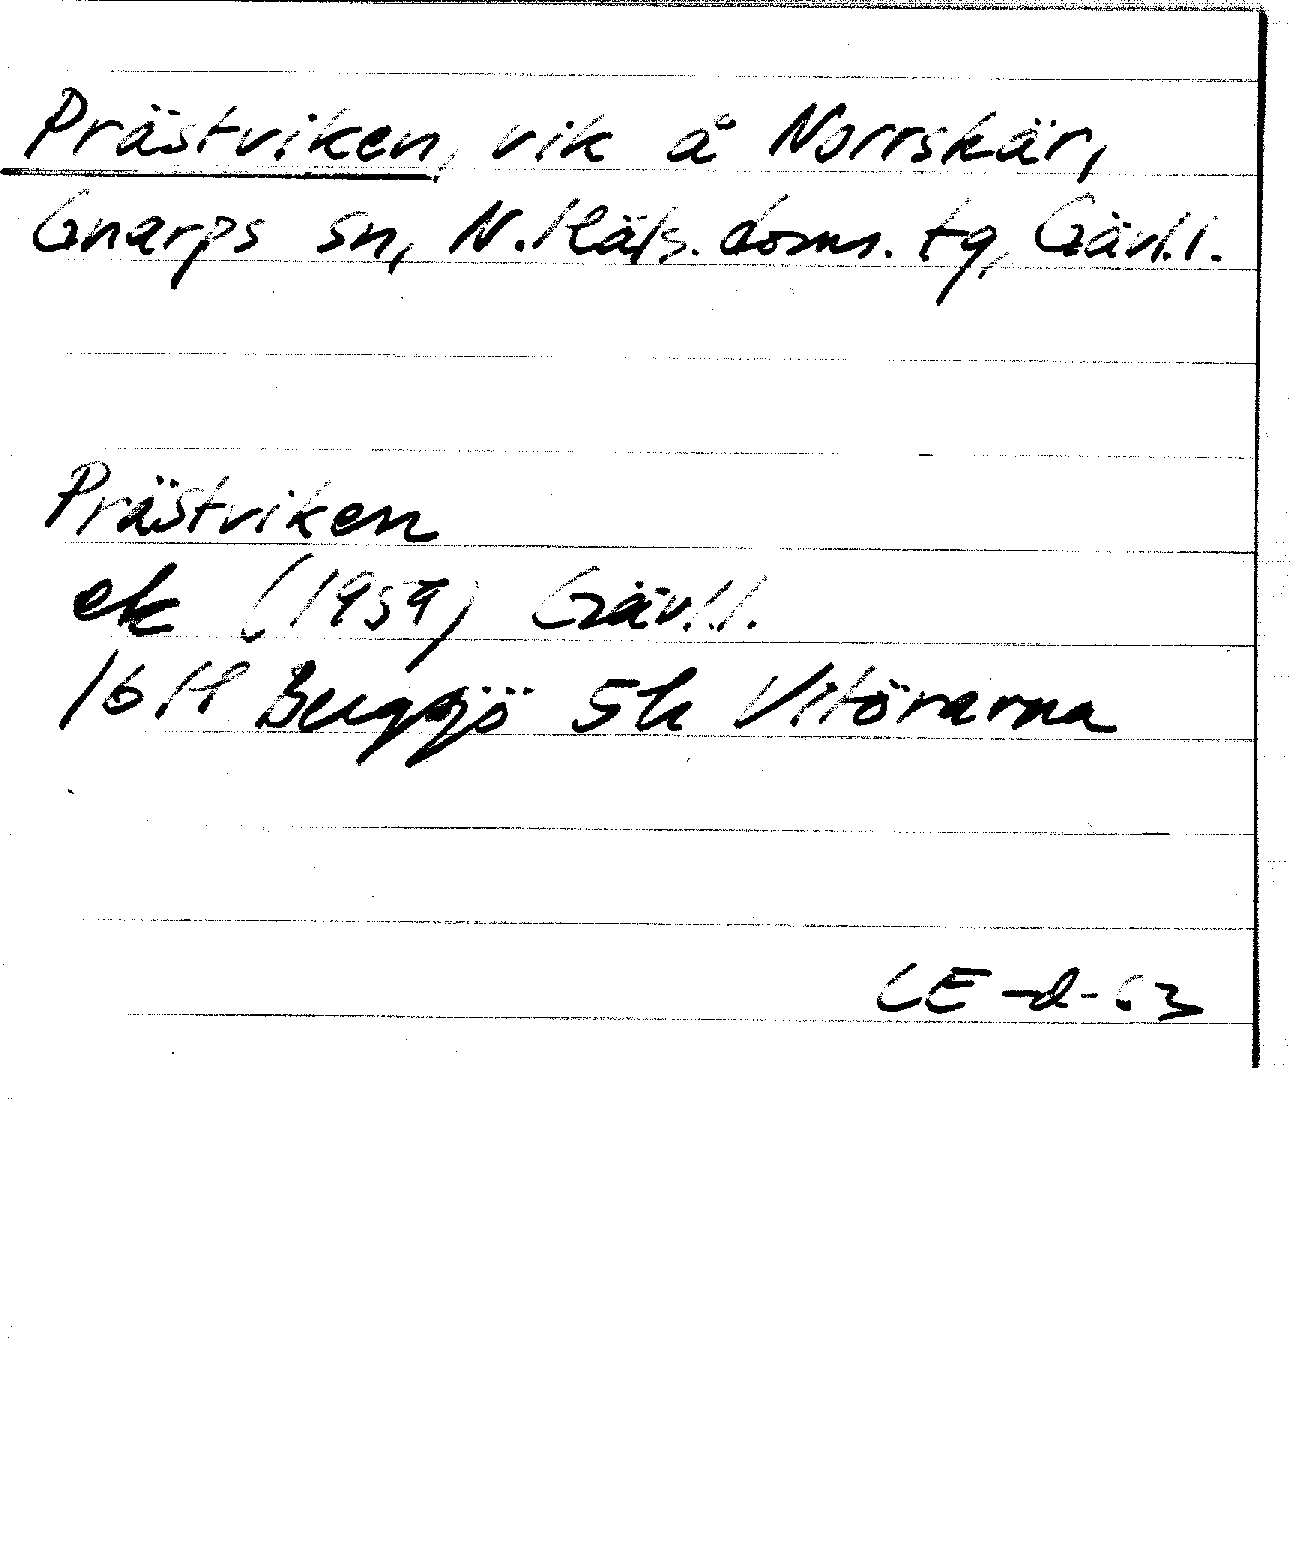 Prästviken, vik å Norrskär,
Gnarps sn, N. Häls. doms. tg, Gävl. l.
Prästviken
ek (1959) Gävl. l.
16 H Bergsjö 5h Vitörarna